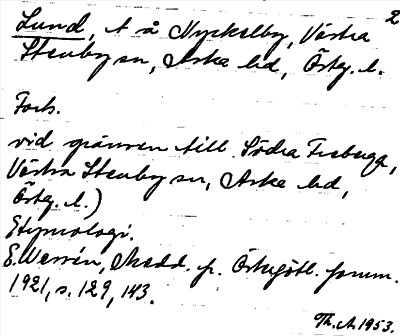 2
Lund, t å Nyckelby, Västra
Stenby sn, Aska hd, Östg. l.
Forts.
vid gränsen till Södra Freberga,
Västra Stenby sn, Aska hd,
Östg. l.)
Etymologi.
E. Wessén, Medd. fr. Östergötl. fornm.
1921, s. 129, 143.
Th. A 1953.